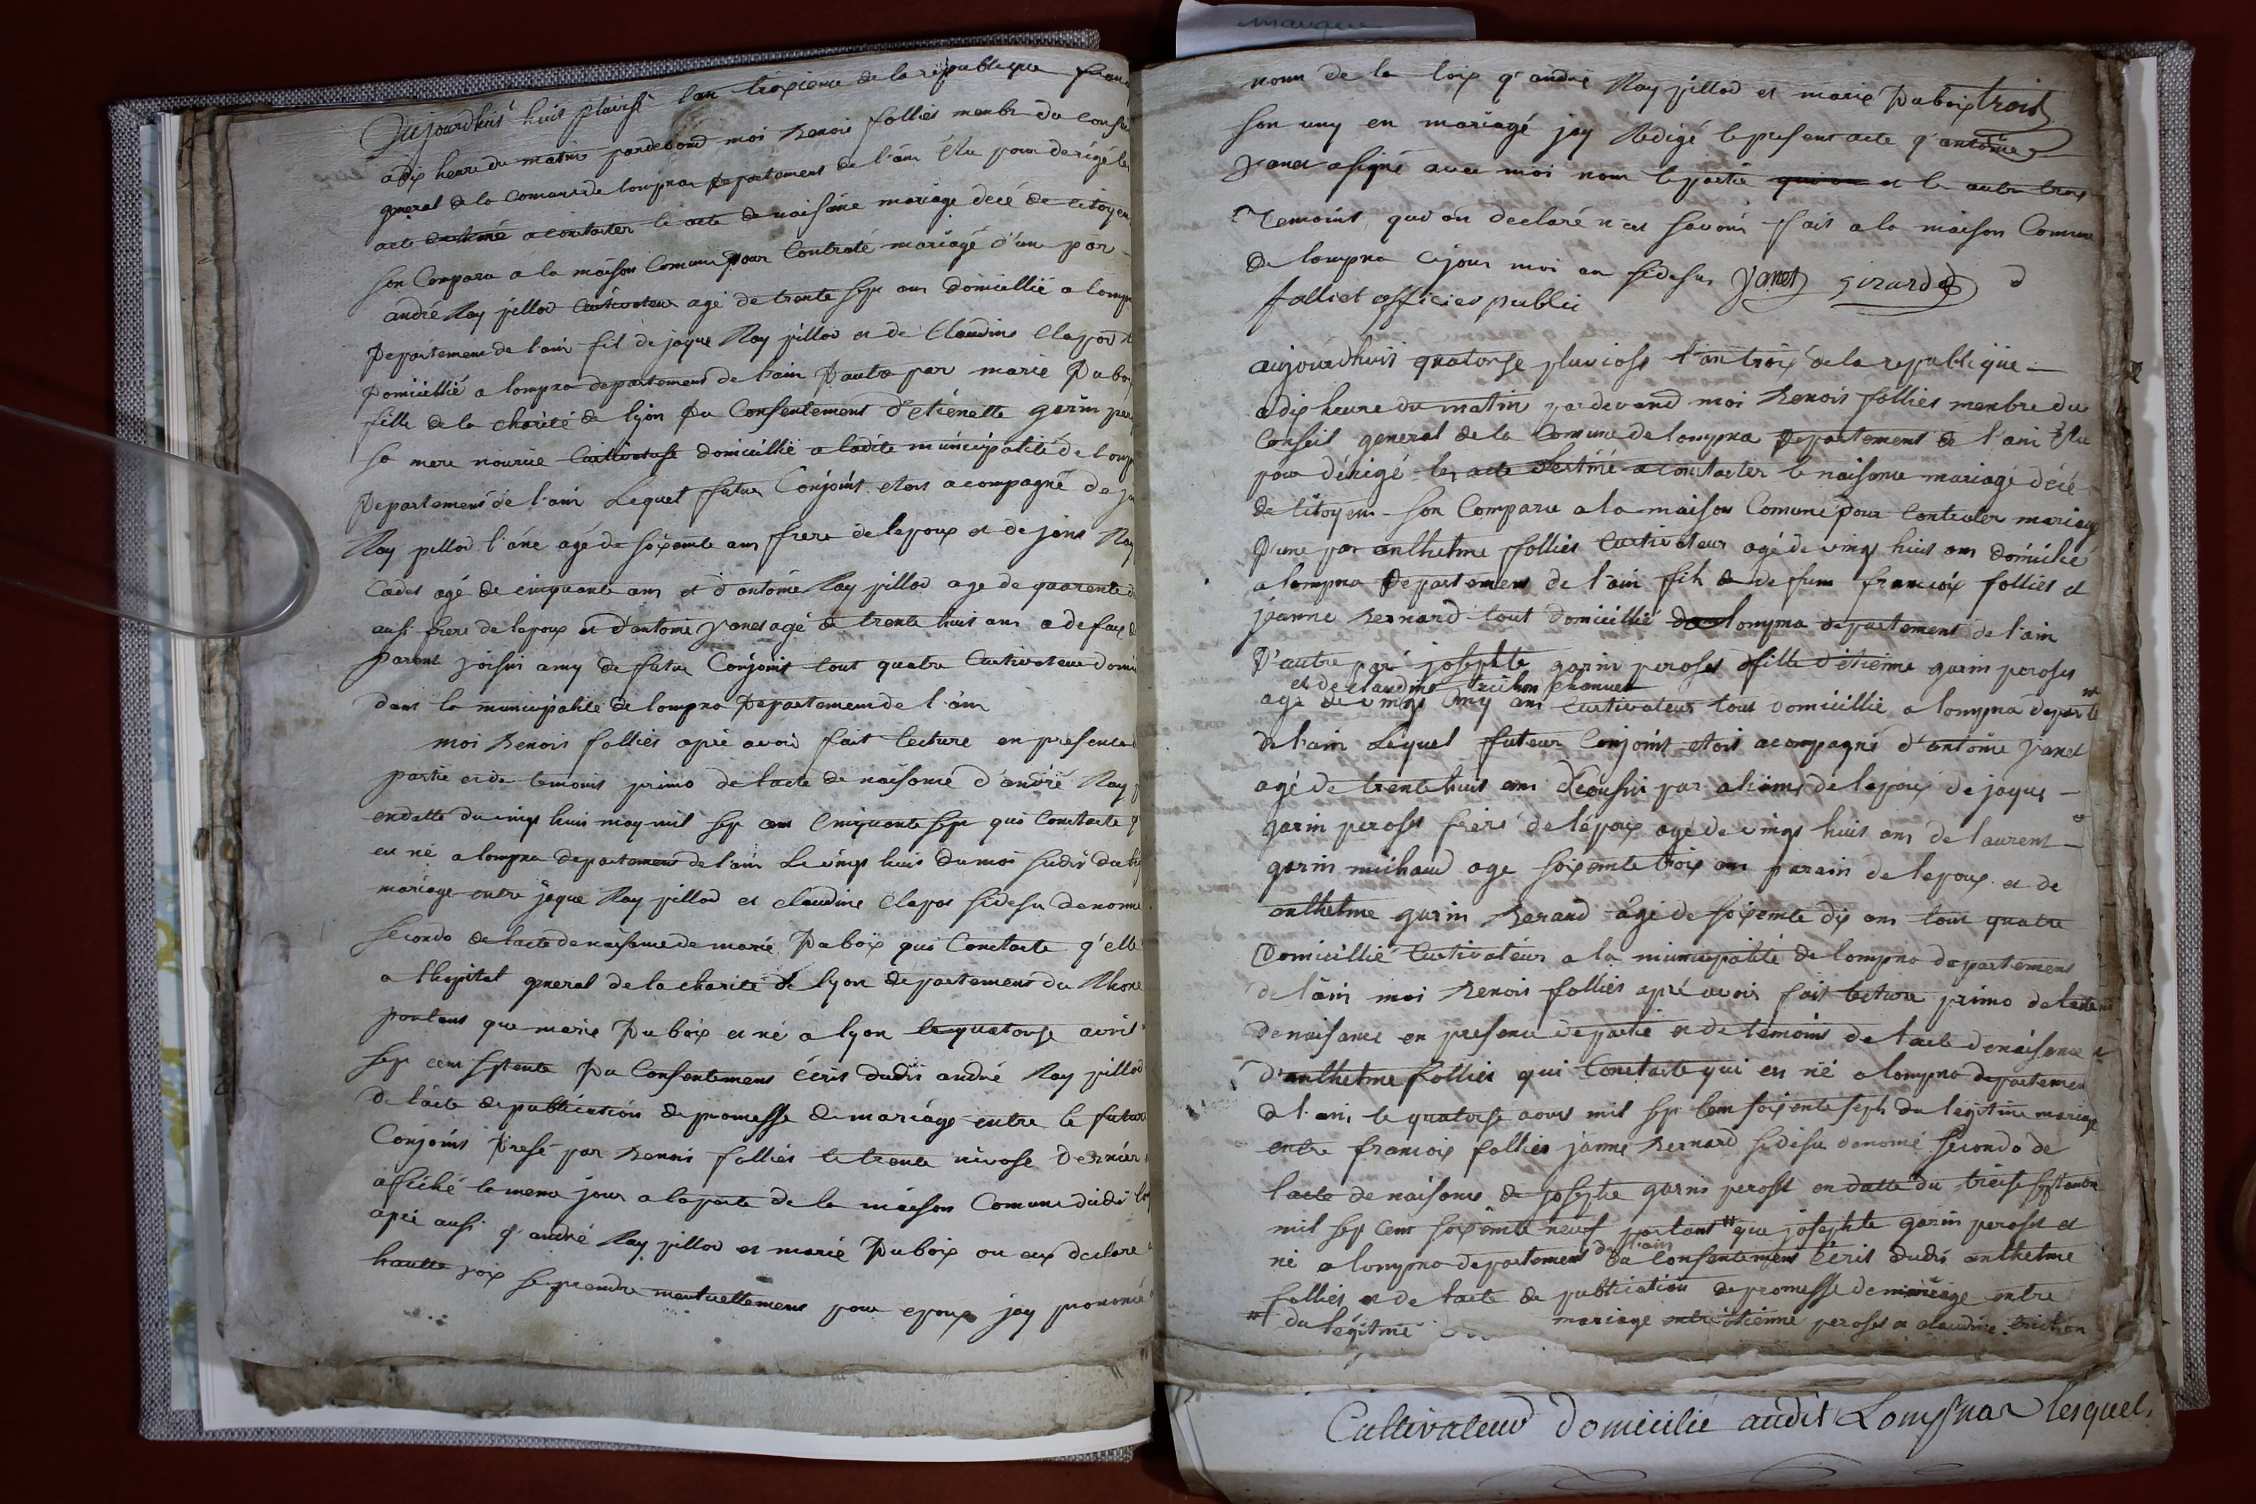 Aujourdhui huit pluviose l'an troixieme de la republique fran
a dix heure du matin pardevand moi Benois follies menbre du conse
general de la comune de lompna departement de l'ain élu pour derigé le
acte destiné a constater le acte de naisance mariage décé de citoyen
son Comparu a la maison Comune pour Contraté mariagé d'une par
andré Ray pillod Cultivateur agé de trante sept ans domicillié a lompn
Departement de l'ain fil de jaque Ray pillod et de Claudine Clapod
Domicillié a lompna departement de l'ain D'autre par marie Duboi
fille de la charité de lyon Du Consentement d'etienette garin
sa mere nourice Cultivateuse domicillié a ladite municipalité de lomp
Departement de l'ain Lequel futur Conjoint etois acompagné de
Ray pillod l'ainé agé de soixante ans frere de lepoux et de Ray
Cadet agé de cinquante ans et d'antoine Ray pillod age de quarente
ausi frere de lepoux et d'antoine janet agé de trente huit ans a defaux de
parent voisin amy de futur Conjoint tout quatre Cultivateur domi
dans la municipalité de lompna Departement de l'ain
moi Benois follies aprè avoir fait lecture en presence
partie et de temoint primo de lacte de naisance d'andré Ray
en datte du vingt huit may mil sept cent Cinquante sept qui Constacte
est né a lompna departement de l'ain Le vingt huit du moi sudit du
mariage entre jaque Ray pillod et claudine Clapos sidesu denomé
secondo de lacte de naisance de marie Duboix qui Constacte q'elle
a lhopital general de la charité de lyon departement du Rhone
portant que marie Duboix et né a lyon le quatorse avril
sept cent septente Du Consentement écris dudit andré Ray pillod
De lacte de publication de promesse de mariage entre le futur
Conjoint Dresé par Benois follies le trente nivose dernier
afiché le meme jour a la porte de la maison Comune dudit
aprè ausi q' andré Ray pillod et marie Duboix ou eux declaré
haute voix se prendre mutuellement pour epoux jay prononcé
nom de la loix q' andré Ray pillod et marie Duboix trois
son uny en mariagé jay Redigé le present acte q' antoine
janet a signé avec moi nom le partie et le autre trois
Temoint qui on declaré n'en savoir fait a la maison Comune
de lompna ce jour moi an sidesus Janet girard
folliet officier public
aujourdhuit quatorse pluviose l'an trois de la republique
a dix heure du matin pardevand moi Benois follies menbre du
Conseil general de la Comune de lompna Departement de l'ain élu
pour dérigé les acte destiné a constacter le naisance mariagé décé
de citoyens son Comparu a la maison Comune pour Contracter mariage
D'une par anthelme follies Cultivateur agé de vingt huit ans domicilié
a lompna Departement de l'ain fils de fеuм francois follies et
jeanne Bernard tout domicillié lompna departement de l'ain
D'autre par josephte garin peroset fille d'étienne garin peroset
et de claudine trichon
agé de vingt cinq ans Cultivateur tous domicillié a lompna departe
de l'ain Lequel futeur Conjoint etoit acompagné d'antoine janet
agé de trente huit ans Cousin par aliance de lepoux de jaques
garin peroset frere de lépoux agé de vingt huit ans de laurent
garin michaud age soixente troix ans parain de lepoux et de
anthelme garin Berard agé de soixente dix ans tout quatre
Domicillié Cultivateur a la municipalité de lompna departement
de l'ain moi Benois follies aprè avoir fait lecture primo de lacte
de naisance en presence de partie et de temoint de lacte de naisance
d'anthelme follies qui Constacte qui est né a lompna departement
de l'ain le quatorse aoust mil sept cent soixente sept du legitime mariage
entre francois follies janne Bernard sidesu denomé secondo de
lacte de naisance de josephte garin peroset en datte du treise septembre
mil sept cent soixante neuf portant que josephte garin peroset et
né a lompna departement de l'ain Du Consentement écrit dudit anthelme
follies et de lacte de publication de promesse de mariage entre
du légitime mariage entre étienne peroset et claudine trichon
Cultivateur domicilié audit Lompnas lesquel